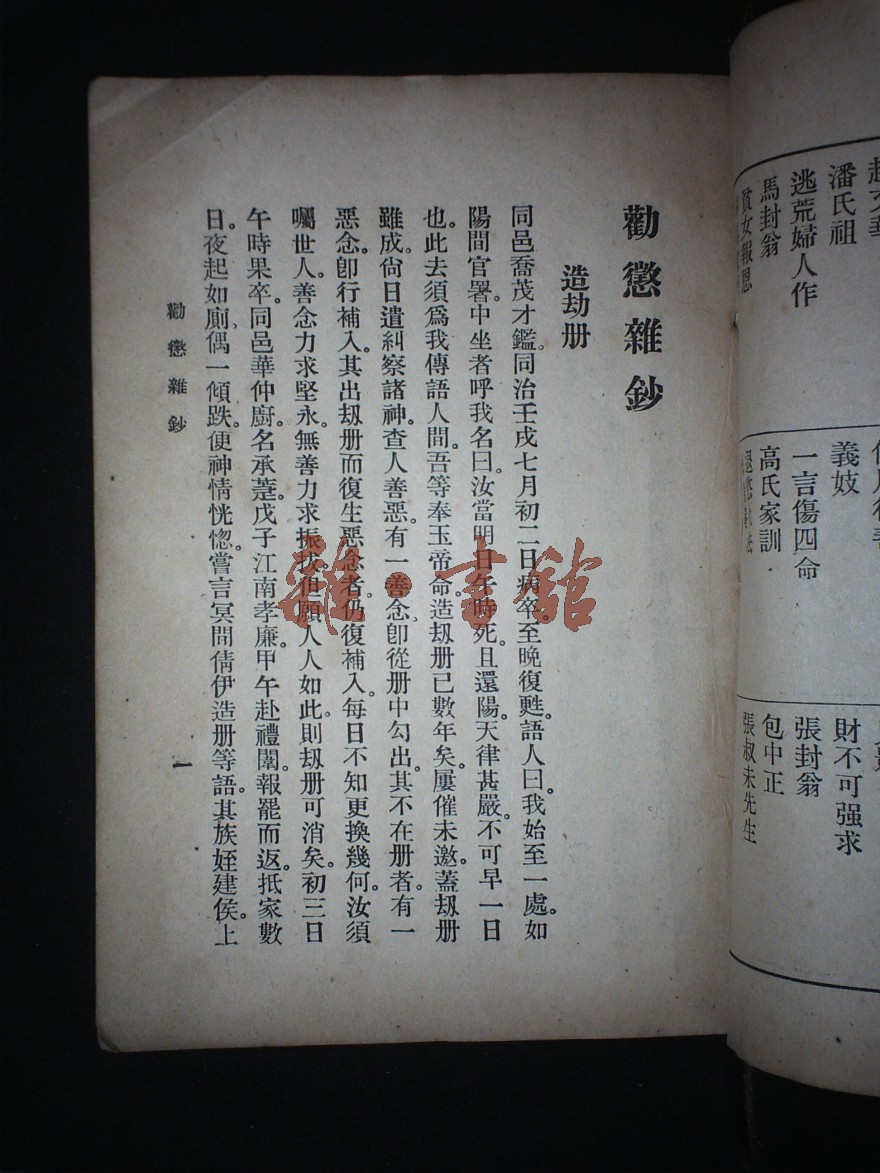 逃荒婦人作
潘氏祖
馬封翁
貧女報恩
義妓
一言傷四命
高氏家訓
財不可强求
張封翁
包中正
張叔未先生
勸懲雜鈔
造劫册
同邑喬茂才鑑。同治壬戌七月初二日病卒。至晚復甦。語人曰。我始至一處。如
陽間官署。中坐者呼我名曰。汝當明日午時死。且還陽。天律甚嚴。不可早一日
也。此去須爲我傳語人間。吾等奉玉帝命。造刼册已數年矣。屢催未邀。蓋刼册
雖成。尙日遣糾察諸神。查人善惡。有一善念。卽從册中勾出。其不在册者。有一
惡念。卽行補入。其出刼册而復生惡念者。仍復補入。每日不知更換幾何。汝須
囑世人。善念力求堅永。無善力求振拔。但願人人如此。則刼册可消矣。初三日
午時果卒。同邑華仲廚。名承䕫。戊子江南孝廉。甲午赴禮闈。報罷而返。抵家數
日。夜起如厠。偶一傾跌。便神情恍惚。嘗言冥間倩伊造册等語。其族姪建侯。上
勸懲雜鈔
一
雜·書館